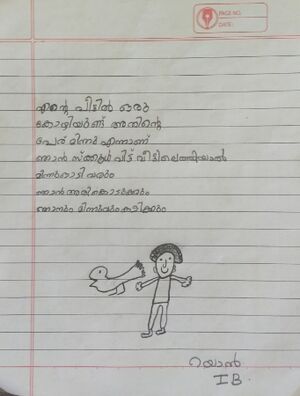 PAGE NO.
DATE:
എന്റെ വീട്ടിൽ ഒരു
കോഴിയുണ്ട് അതിന്റെ
പേര് മിന്നു എന്നാണ്
ഞാൻ സ്ക്കൂൾ വിട്ട് വീട്ടിലെത്തിയാൽ
മിന്നു ഓടി വരും
ഞാൻ അരി കൊടുക്കും
ഞാനും മിന്നുവും കളിക്കും
റയാൻ
I B